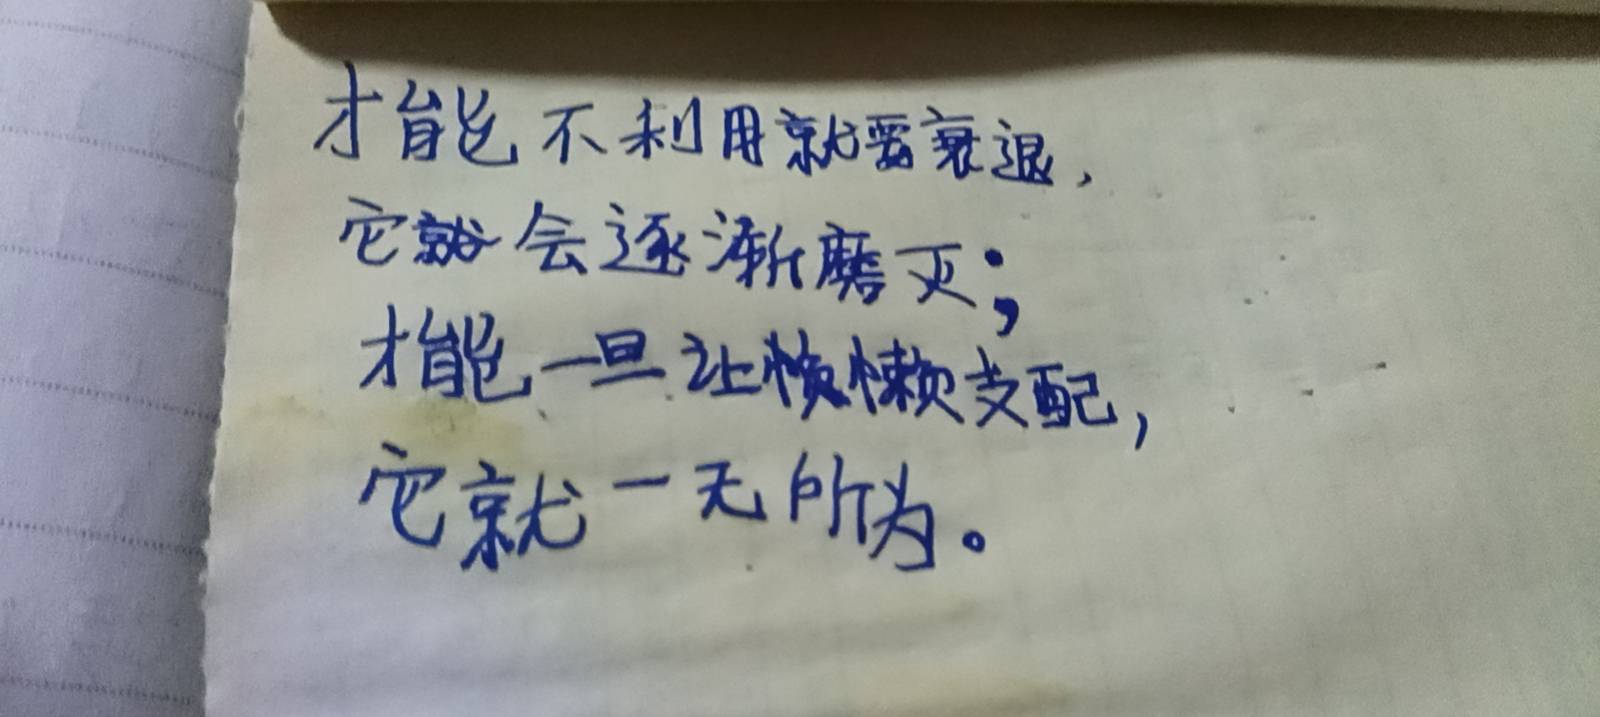 才能不利用就要衰退,
它就会逐渐磨灭;
才能一旦让懒懒支配,
它就一无所为。